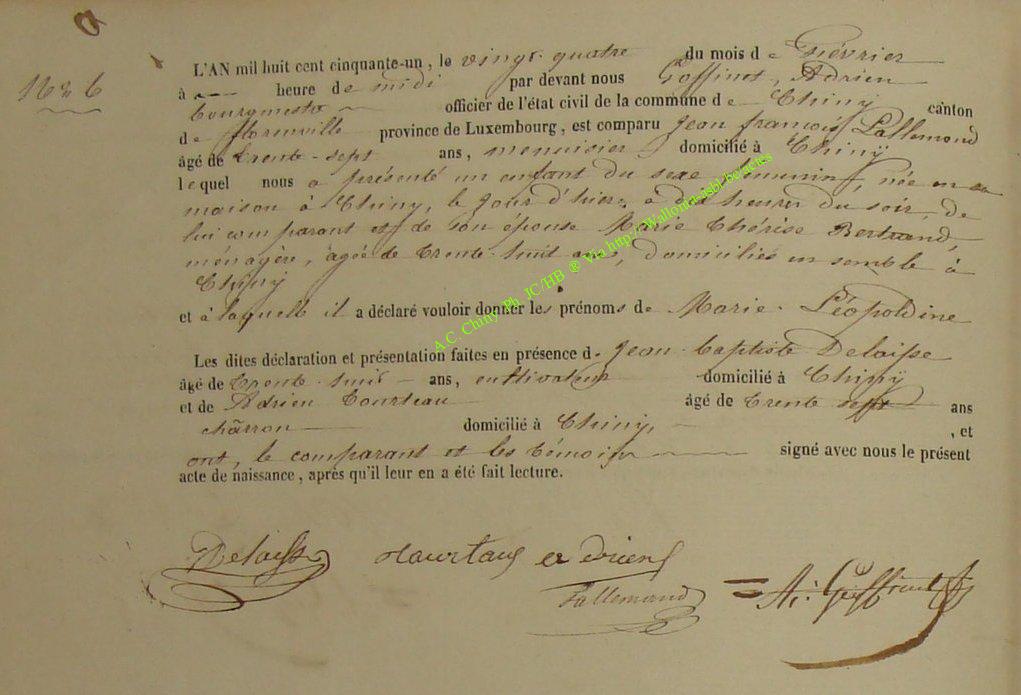 N° 6
L'AN mil huit cent cinquante-un, le vingt-quatre du mois de Février
à — heure de midi par devant nous Goffinet, Adrien
bourgmestre officier de l'état civil de la commune de Chiny canton
de florenville province de Luxembourg, est comparu Jean françois Lallemand
âgé de trente-sept ans, menuisier domicilié à Chiny
lequel nous a présenté un enfant du sexe féminin, née en sa
maison à Chiny, le jour d'hier, à heures du soir, de
lui comparant et de son épouse Marie Thérèse Bertrand,
ménagère, âgée de trente-huit ans, domiciliés ensemble à
Chiny
et à laquelle il a déclaré vouloir donner les prénoms de Marie-Léopoldine
Les dites déclaration et présentation faites en présence de Jean-baptiste Delaisse
âgé de trente-huit — ans, cultivateur domicilié à Chiny
et de Adrien tourteau âgé de trente sept ans
charron domicilié à Chiny, , et
ont, le comparant et les témoins signé avec nous le présent
acte de naissance, après qu'il leur en a été fait lecture.
Delaisse adrien
Lallemand
A.C. Chiny Ph JC/HB ® Via http://Wallonia-asbl.be/actes